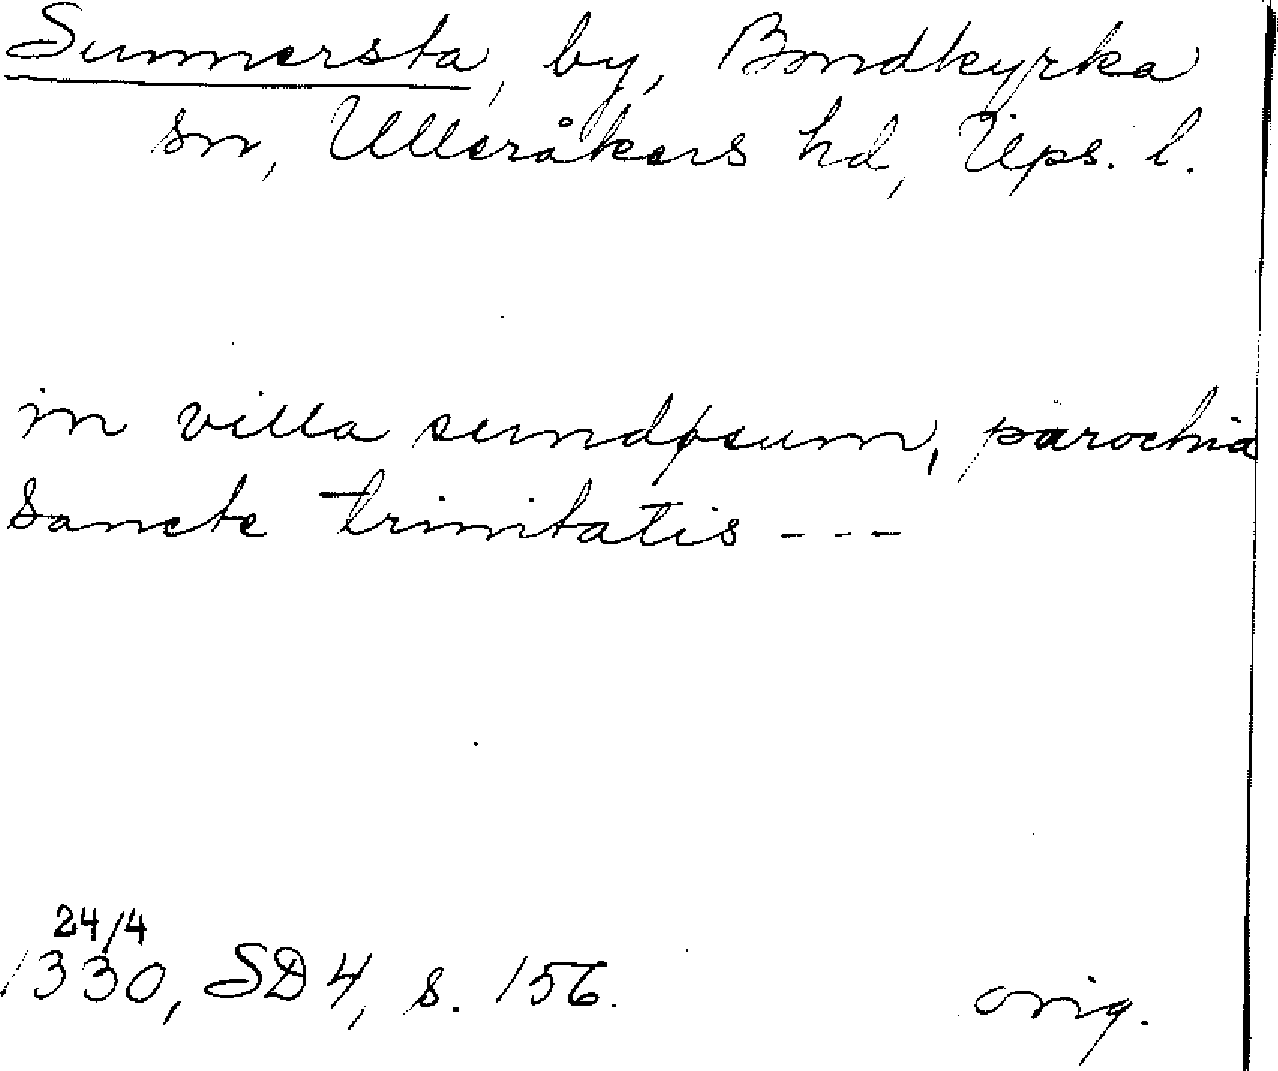 Sunnersta, by, Bondkyrka
sn, Ulleråkers hd, Ups. l.
in villa sundþsum, parochia
sancte trinitatis ---
24/4
1330, SD 4, s. 156.
orig.